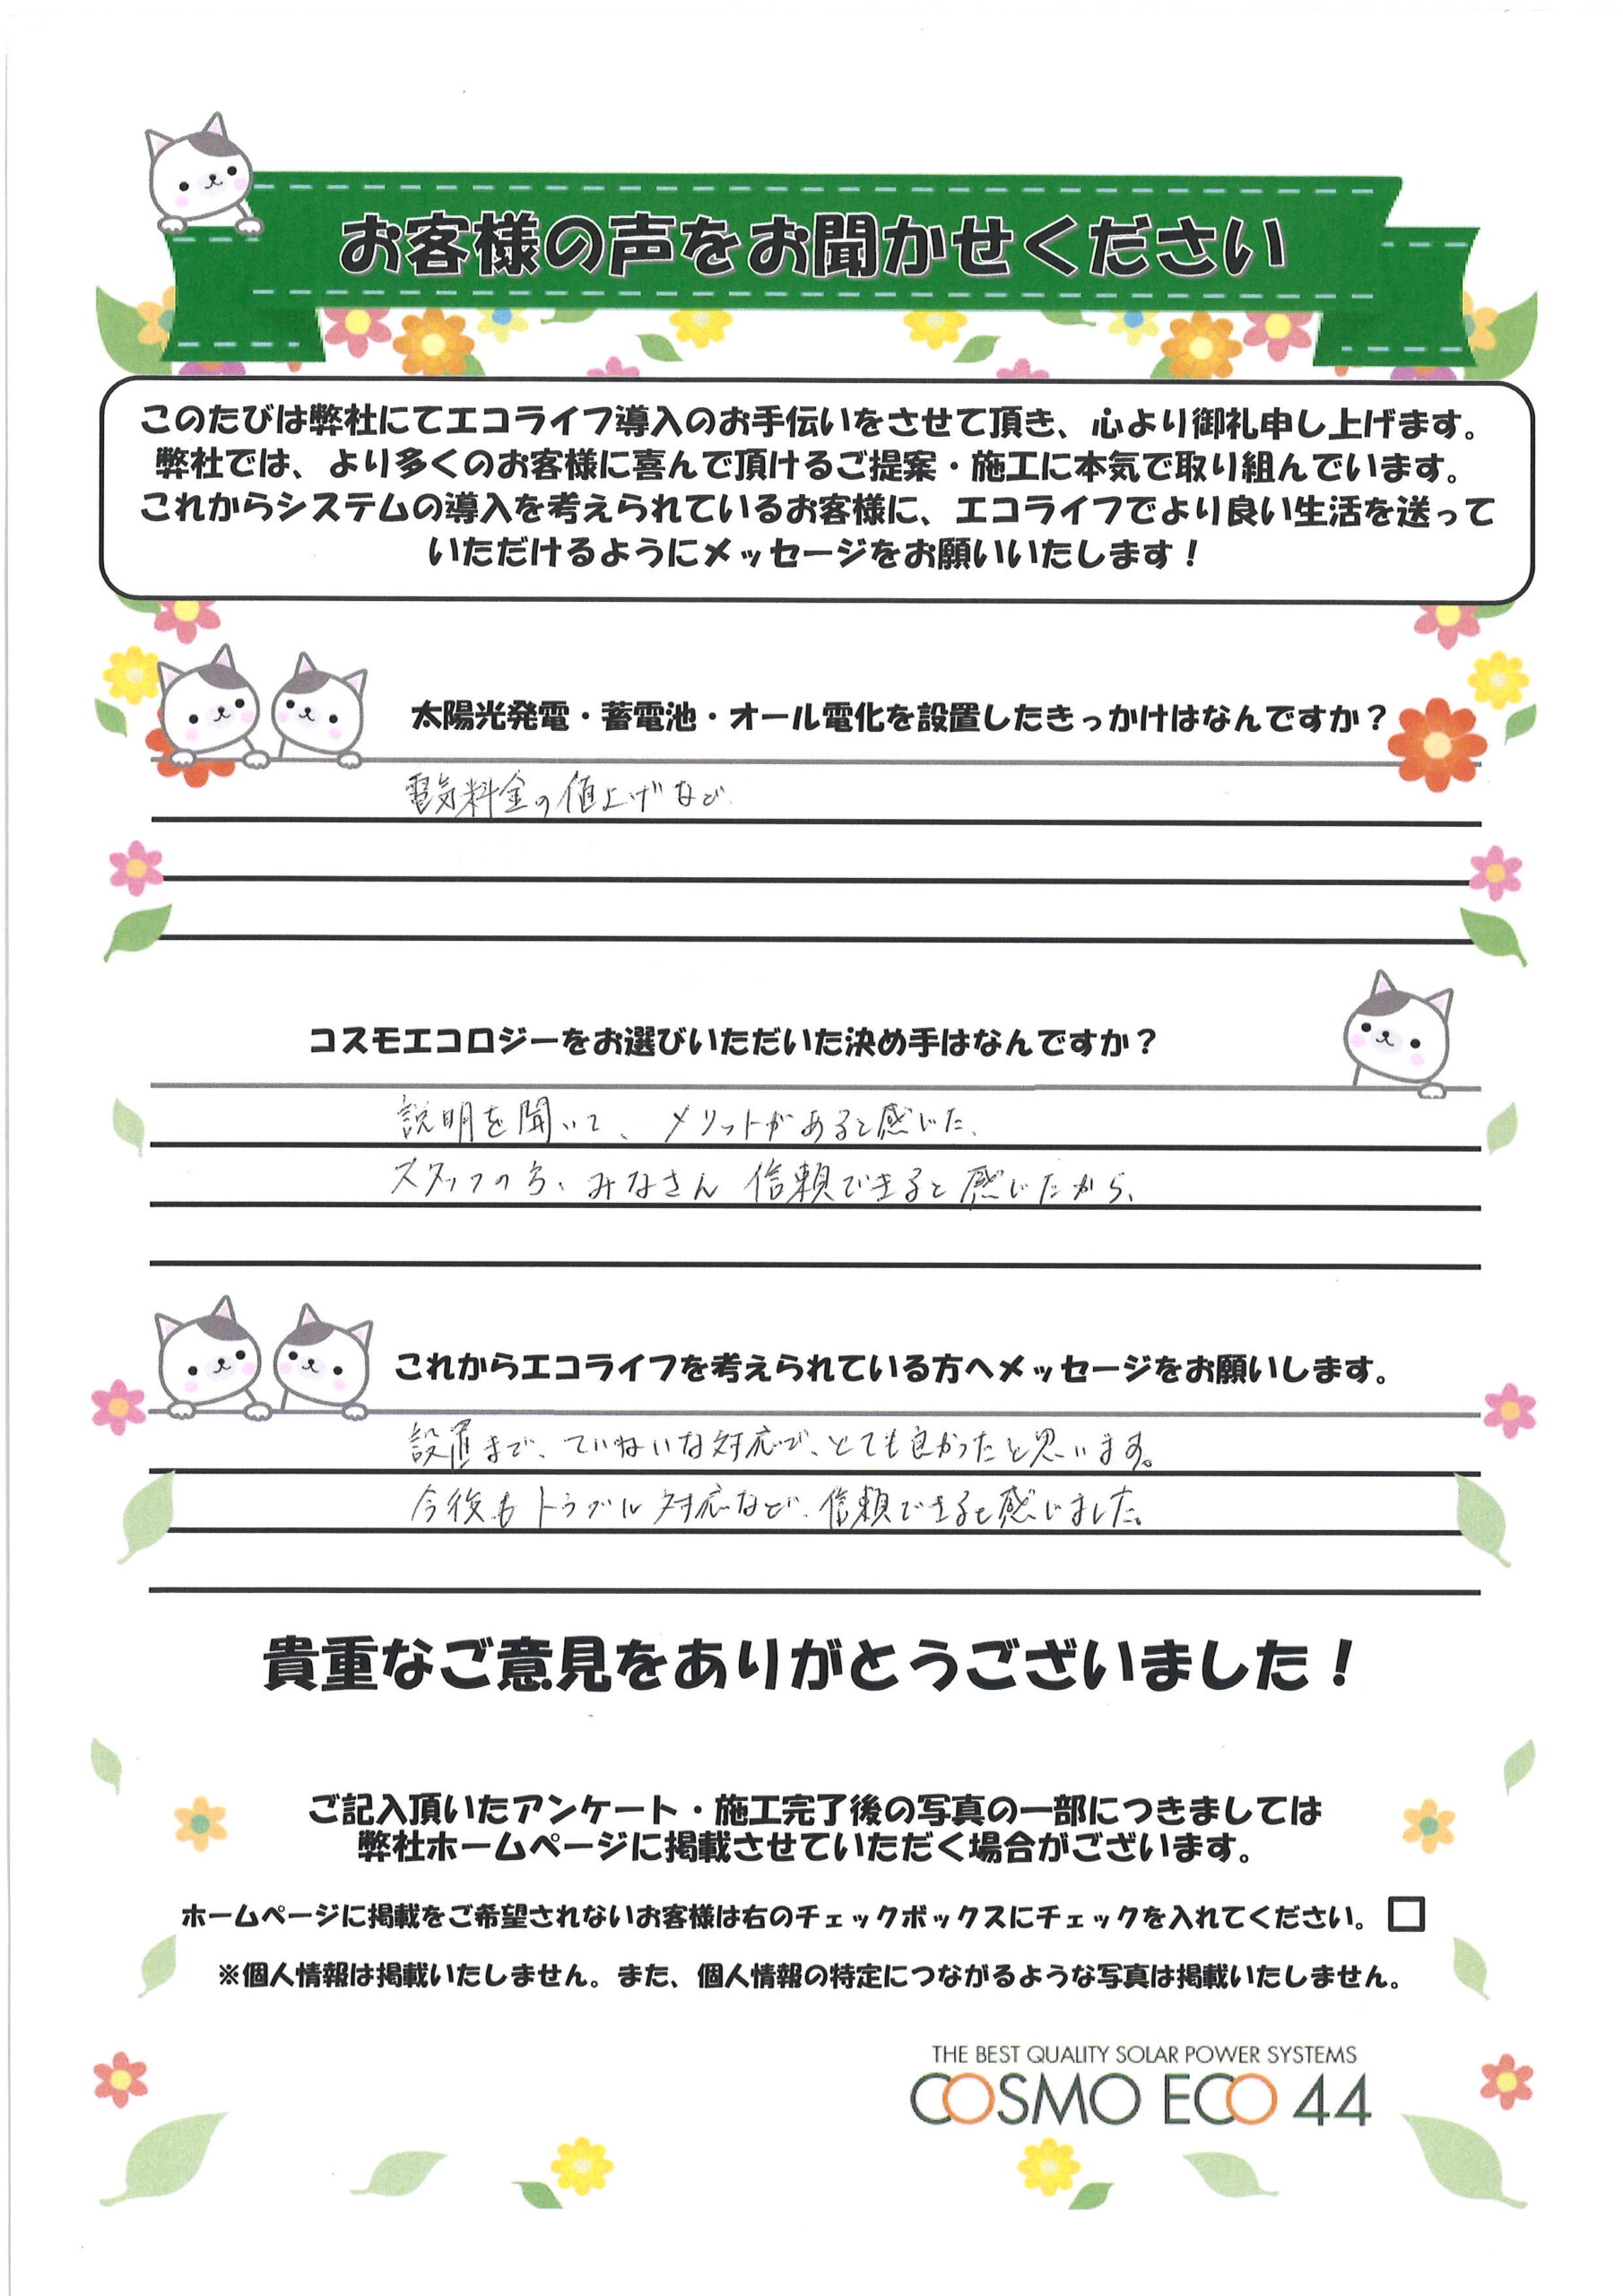 お客様の声をお聞かせください
このたびは弊社にてエコライフ導入のお手伝いをさせて頂き、心より御礼申し上げます。
弊社では、より多くのお客様に喜んで頂けるご提案・施工に本気で取り組んでいます。
これからシステムの導入を考えられているお客様に、エコライフでより良い生活を送って
いただけるようにメッセージをお願いいたします！
太陽光発電・蓄電池・オール電化を設置したきっかけはなんですか？
電気料金の値上げなど
コスモエコロジーをお選びいただいた決め手はなんですか？
説明を聞いて、メリットがあると感じた、
スタッフの方、みなさん 信頼できると感じたから、
これからエコライフを考えられている方へメッセージをお願いします。
設置まで、ていねいな対応で、とても良かったと思います。
今後もトラブル対応など、信頼できると感じました。
貴重なご意見をありがとうございました！
ご記入頂いたアンケート・施工完了後の写真の一部につきましては
弊社ホームページに掲載させていただく場合がございます。
ホームページに掲載をご希望されないお客様は右のチェックボックスにチェックを入れてください。
※個人情報は掲載いたしません。また、個人情報の特定につながるような写真は掲載いたしません。
THE BEST QUALITY SOLAR POWER SYSTEMS
COSMO ECO 44